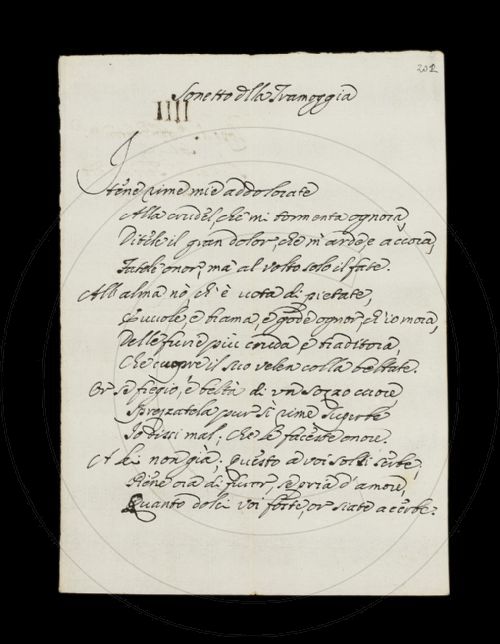 202
Sonetto dlla Tramoggia
IIII
Itene rime mie addolorate
Alla crudel, che mi tormenta ognora,
Ditele il gran dolor, che m'arde, e accora,
Fatele onor, ma al volto solo il fate.
All'alma nò, ch'è vota di pietate,
E vuole, e brama, e gode ognor, ch'io mora,
Delle furie più cruda, e traditora,
Che cuopre il suo velen colla beltate.
Or se fregio, è beltà di vn sozzo cuore,
Sprezzatela pur sì rime superbe
Io dissi mal; che le faceste onore.
A lei non già, questo a voi sol si serbe,
Piene ora di furor, se pria d'amore,
Quanto dolci voi foste, or siate acerbe.